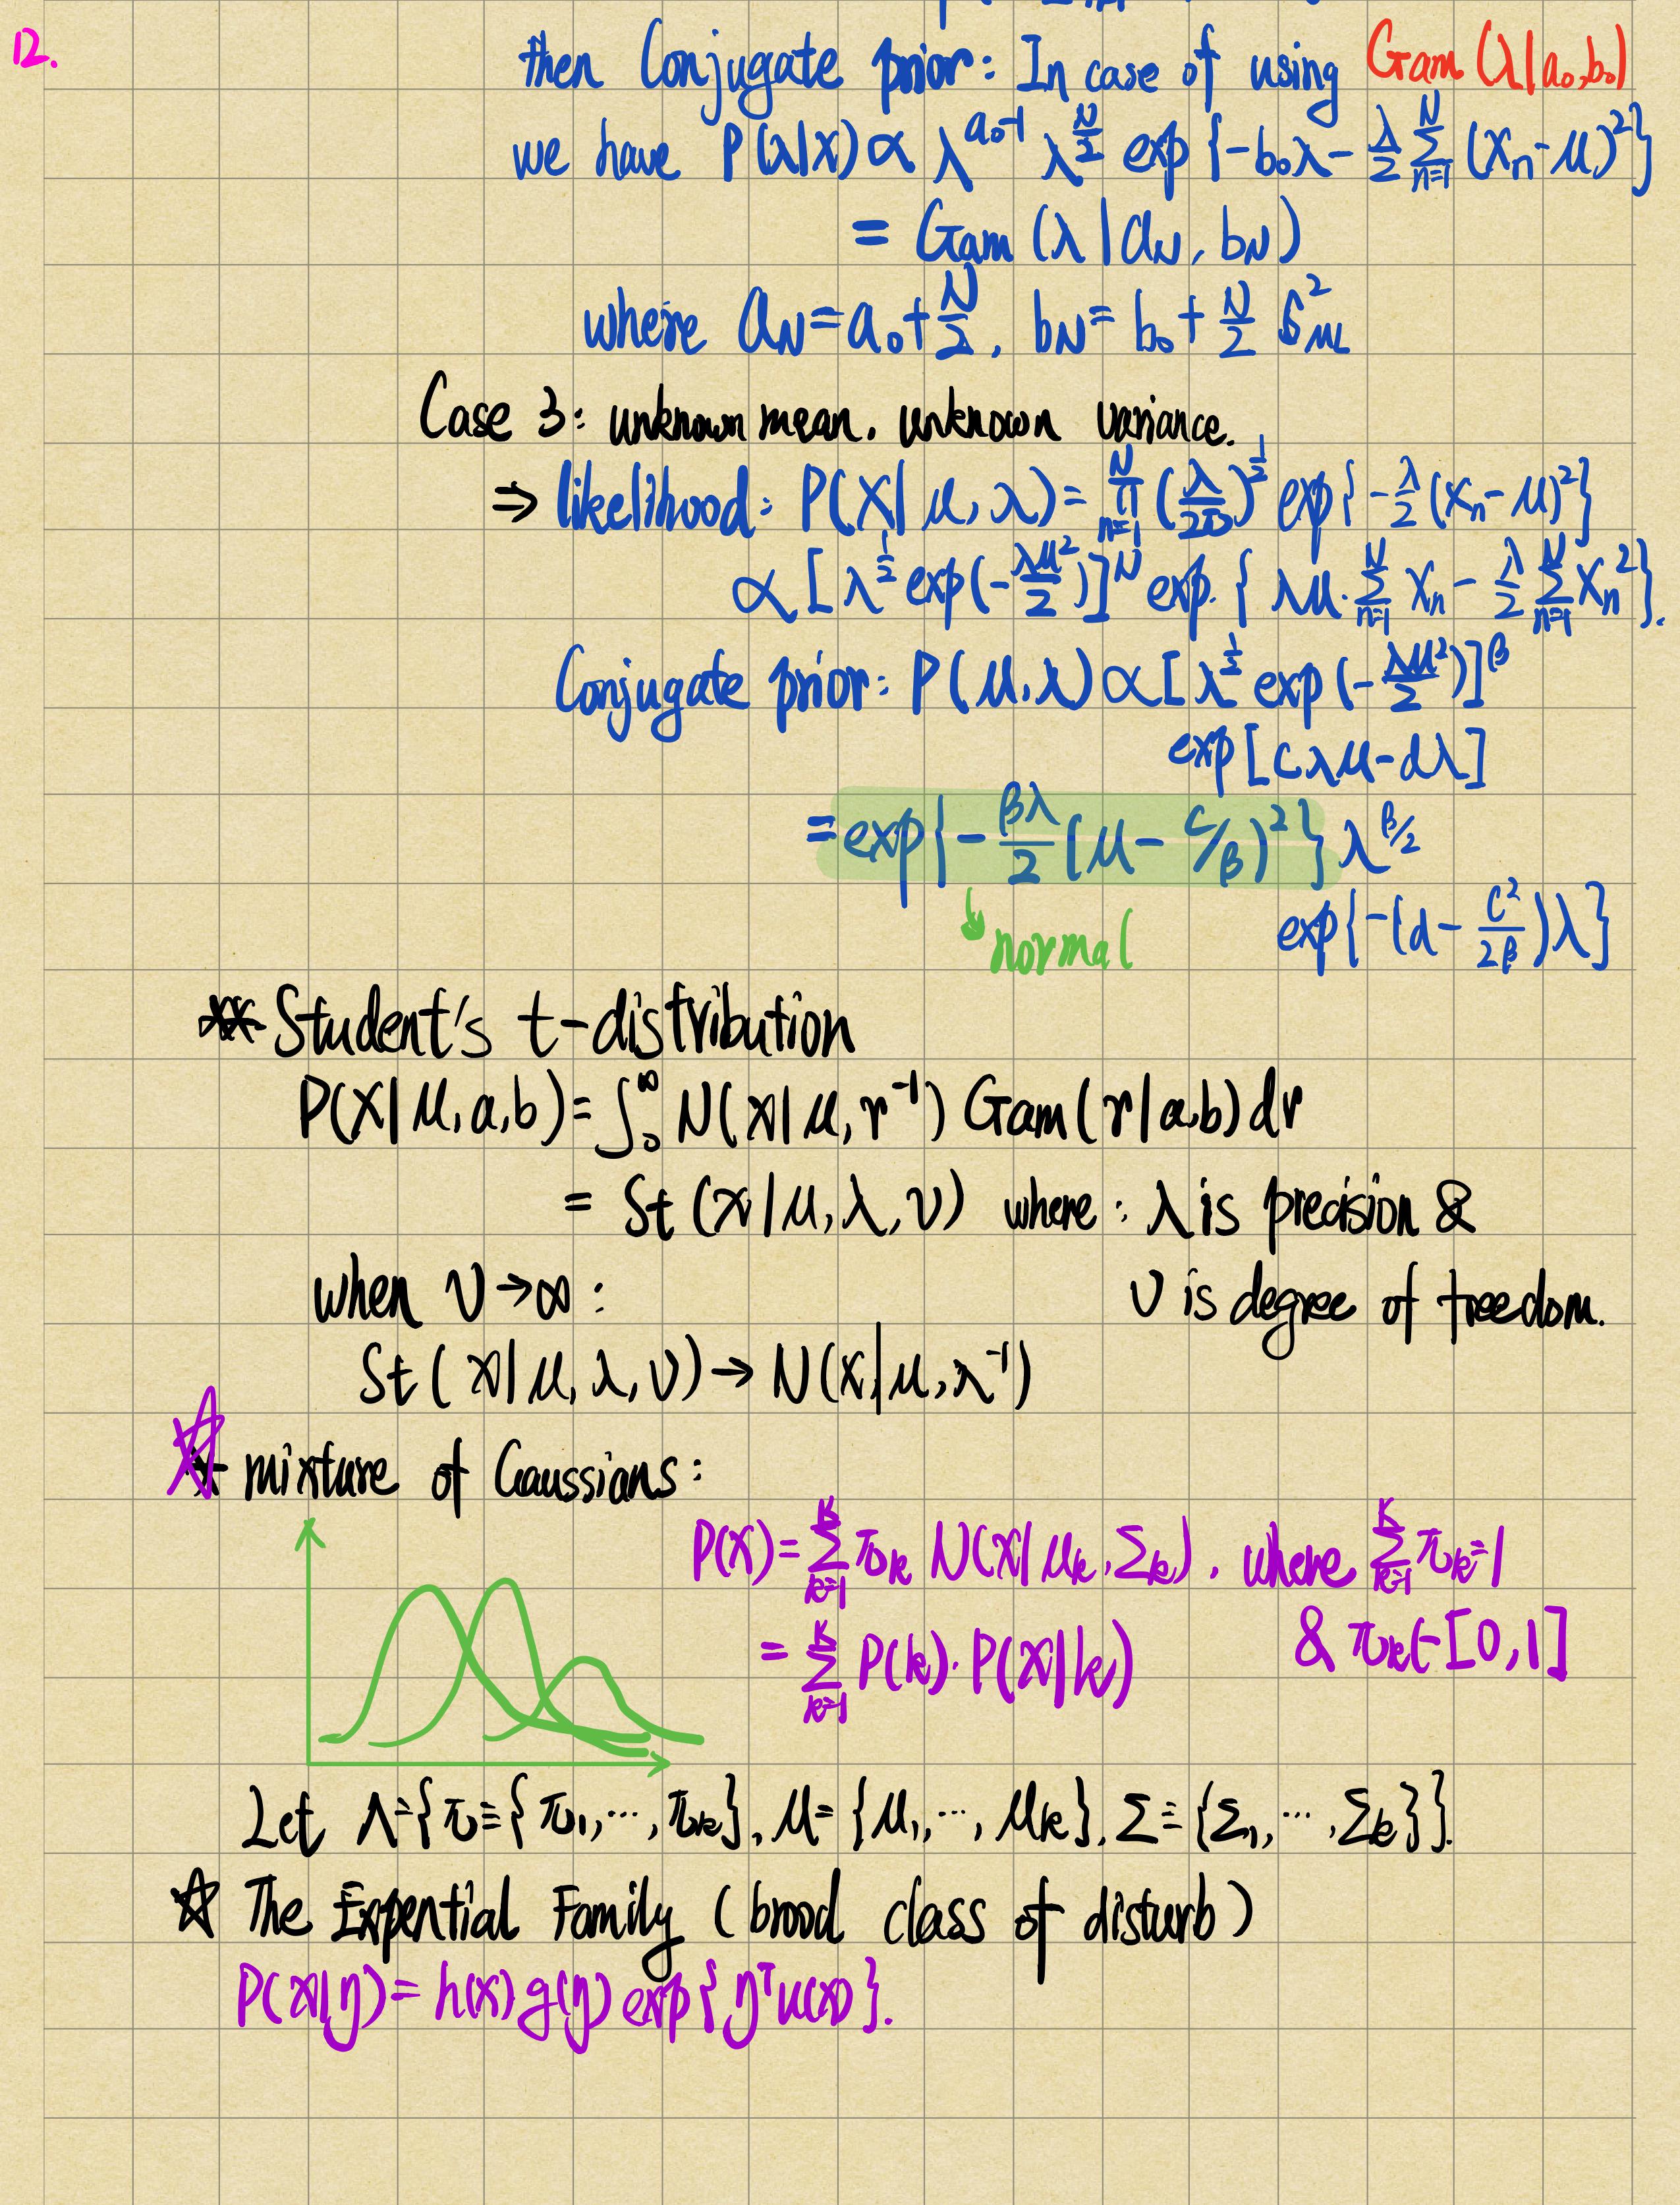 12.
then Conjugate prior: In case of using Gam(λ|a₀,b₀)
we have P(λ|X) ∝ λ^{a₀-1} λ^{N/2} exp{-b₀λ - λ/2 Σ_{n=1}^{N} (Xn-μ)²}
= Gam(λ|a_N, b_N)
where a_N = a₀ + N/2, b_N = b₀ + N/2 δ²_{ML}
Case 3: unknown mean. unknown variance.
⇒ likelihood: P(X|μ,λ) = Π_{n=1}^{N} (λ/2π)^{1/2} exp{-λ/2 (Xn-μ)²}
∝ [λ^{1/2} exp(-λμ²/2)]^N exp. {λμ·Σ_{n=1}^{N} Xn - λ/2 Σ_{n=1}^{N} Xn²}.
Conjugate prior: P(μ,λ) ∝ [λ^{1/2} exp(-λμ²/2)]^β
exp[cλμ-dλ]
= exp{-βλ/2 (μ - c/β)²} λ^{β/2}
exp{-(d - c²/2β)λ}
normal
Student's t-distribution
P(X|μ,a,b) = ∫₀^∞ N(x|μ,r⁻¹) Gam(r|a,b) dr
= St(x|μ,λ,ν) where: λ is precision &
when ν→∞: ν is degree of freedom.
St(x|μ,λ,ν) → N(x|μ,λ⁻¹)
mixture of Gaussians:
P(X) = Σ_{k=1}^{K} π_k N(x|μ_k,Σ_k), where Σ_{k=1}^{K} π_k = 1
= Σ_{k=1}^{K} P(k)·P(x|k) & π_k ∈ [0,1]
Let Λ = {π ≡ {π₁,…,π_k}, μ = {μ₁,…,μ_k}, Σ ≡ {Σ₁,…,Σ_k}}.
☆ The Expential Family (brood class of disturb)
P(x|η) = h(x) g(η) exp{η^T u(x)}.